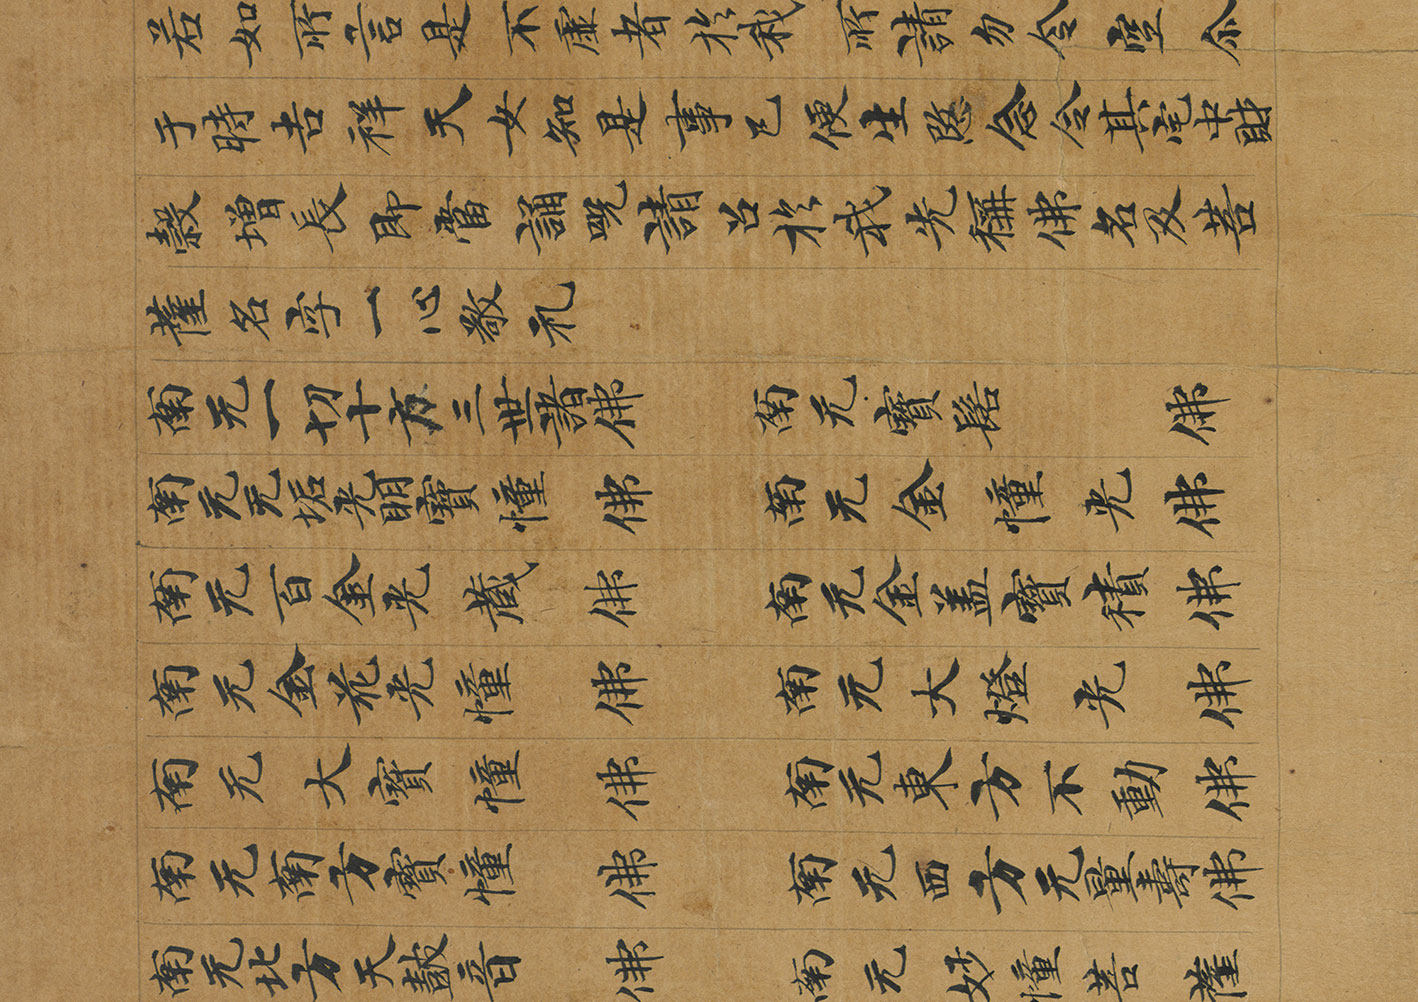 若如所言是不虛者於我所請勿令空尒
于時吉祥天女知是事已便生愍念令其宅中財
穀增長即當誦呪請召於我先稱佛名及菩
薩名字一心敬礼
南无一切十方三世諸佛 南无寶髻佛
南无无垢光明寶幢佛 南无金幢光佛
南无百金光藏佛 南无金盖寶積佛
南无金花光幢佛 南无大燈光佛
南无大寶幢佛 南无東方不動佛
南无南方寶幢佛 南无西方无量壽佛
南无北方天鼓音佛 南无妙幢菩薩